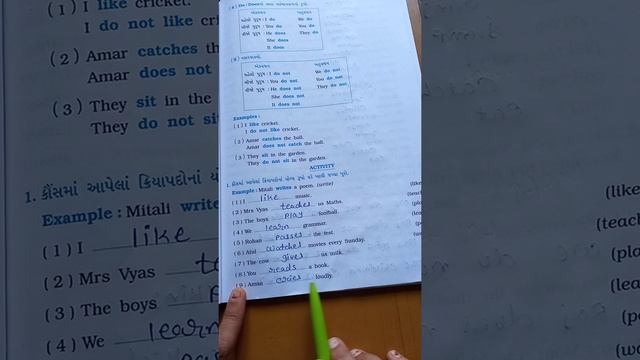 (1) I like cricket.
I do not like
(2) Amar catches the
Amar does not
(3) They sit in the
They do not sit
1. કૌંસમાં આપેલાં ક્રિયાપદોનાં
Example : Mitali write
(1) I like
(2) Mrs Vyas
(3) The boys
(4) We learn
પહેલો પુરુષ : I do We do
બીજો પુરુષ : You do You do
ત્રીજો પુરુષ : He does They do
She does
It does
એકવચન બહુવચન
પહેલો પુરુષ : I do not We do not
બીજો પુરુષ : You do not You do not
ત્રીજો પુરુષ : He does not They do not
She does not
It does not
Examples :
(1) I like cricket.
I do not like cricket.
(2) Amar catches the ball.
Amar does not catch the ball.
(3) They sit in the garden.
They do not sit in the garden.
ACTIVITY
1. કૌંસમાં આપેલાં ક્રિયાપદોનાં યોગ્ય રૂપો વડે ખાલી જગ્યા પૂરો.
Example : Mitali writes a poem. (write)
(1) I like music.
(2) Mrs Vyas teaches us Maths.
(3) The boys play football.
(4) We learn grammar.
(5) Rohan passes the test.
(6) Atul watches movies every Sunday.
(7) The cow gives us milk.
(8) You reads a book.
(9) Aman cries loudly.
(like